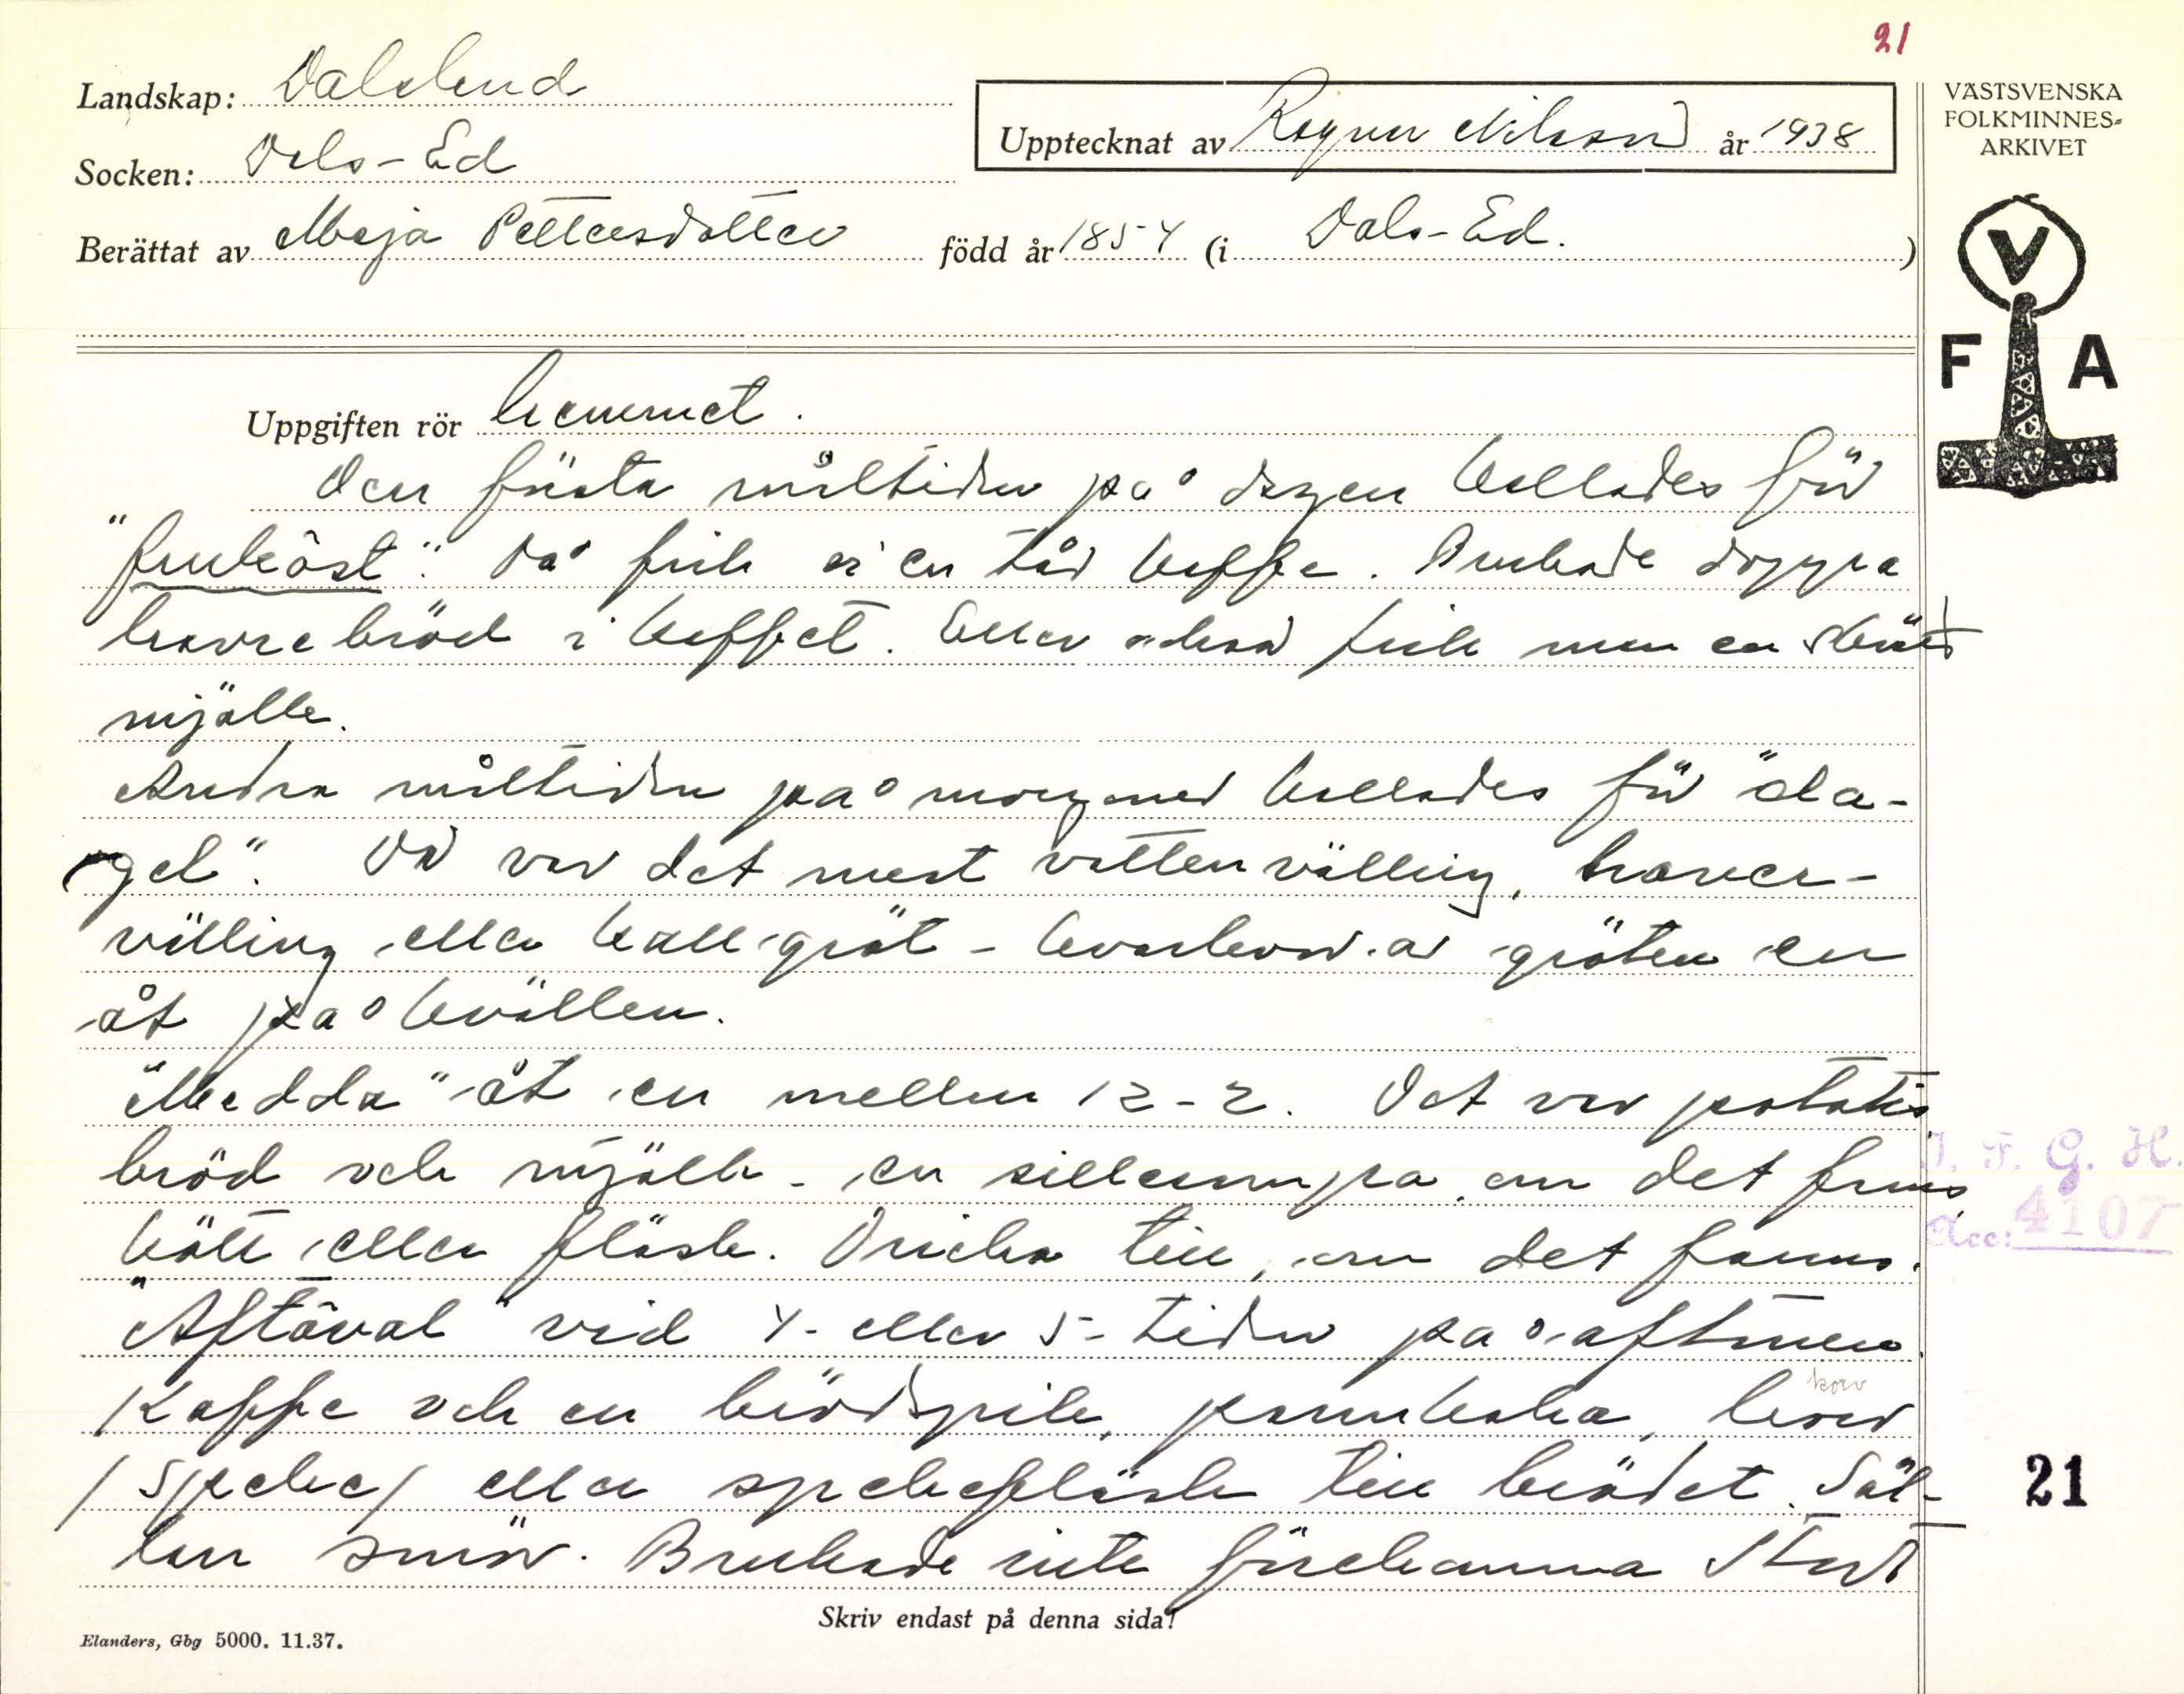 21
Landskap: Dalsland
Socken: Dals-Ed
Upptecknat av Ragnar Nilsson år 1938
Berättat av Maja Pettersdotter född år 1854 (i Dals-Ed. )
VÄSTSVENSKA
FOLKMINNES-
ARKIVET
V
F A
Uppgiften rör hemmet.
Den första måltiden på dagen kallades för
"frukôst". Då fick vi en tår kaffe. Brukade doppa
havrebröd i kaffet. Eller också fick man en skvätt
mjölk.
Andra måltiden på morgonen kallades för "da-
gel". Då var det mest vattenvälling, haver-
välling eller kall gröt - kvarlevor av gröten en
åt på kvällen.
"Medda" åt en mellan 12-2. Det var potatis
bröd och mjölk - en sillsumpa, om det fanns
kött eller fläsk. Dricka till, om det fanns.
"Aftâval" vid 4- eller 5-tiden på aftonen.
Kaffe och en brödspik, pannkaka, korv
korv
/speke/ eller spekefläsk till brödet. Säl-
lan smör. Brukade inte förekomma stort
I. F. G. H.
Acc: 4107
21
Skriv endast på denna sida!
Elanders, Gbg 5000. 11.37.